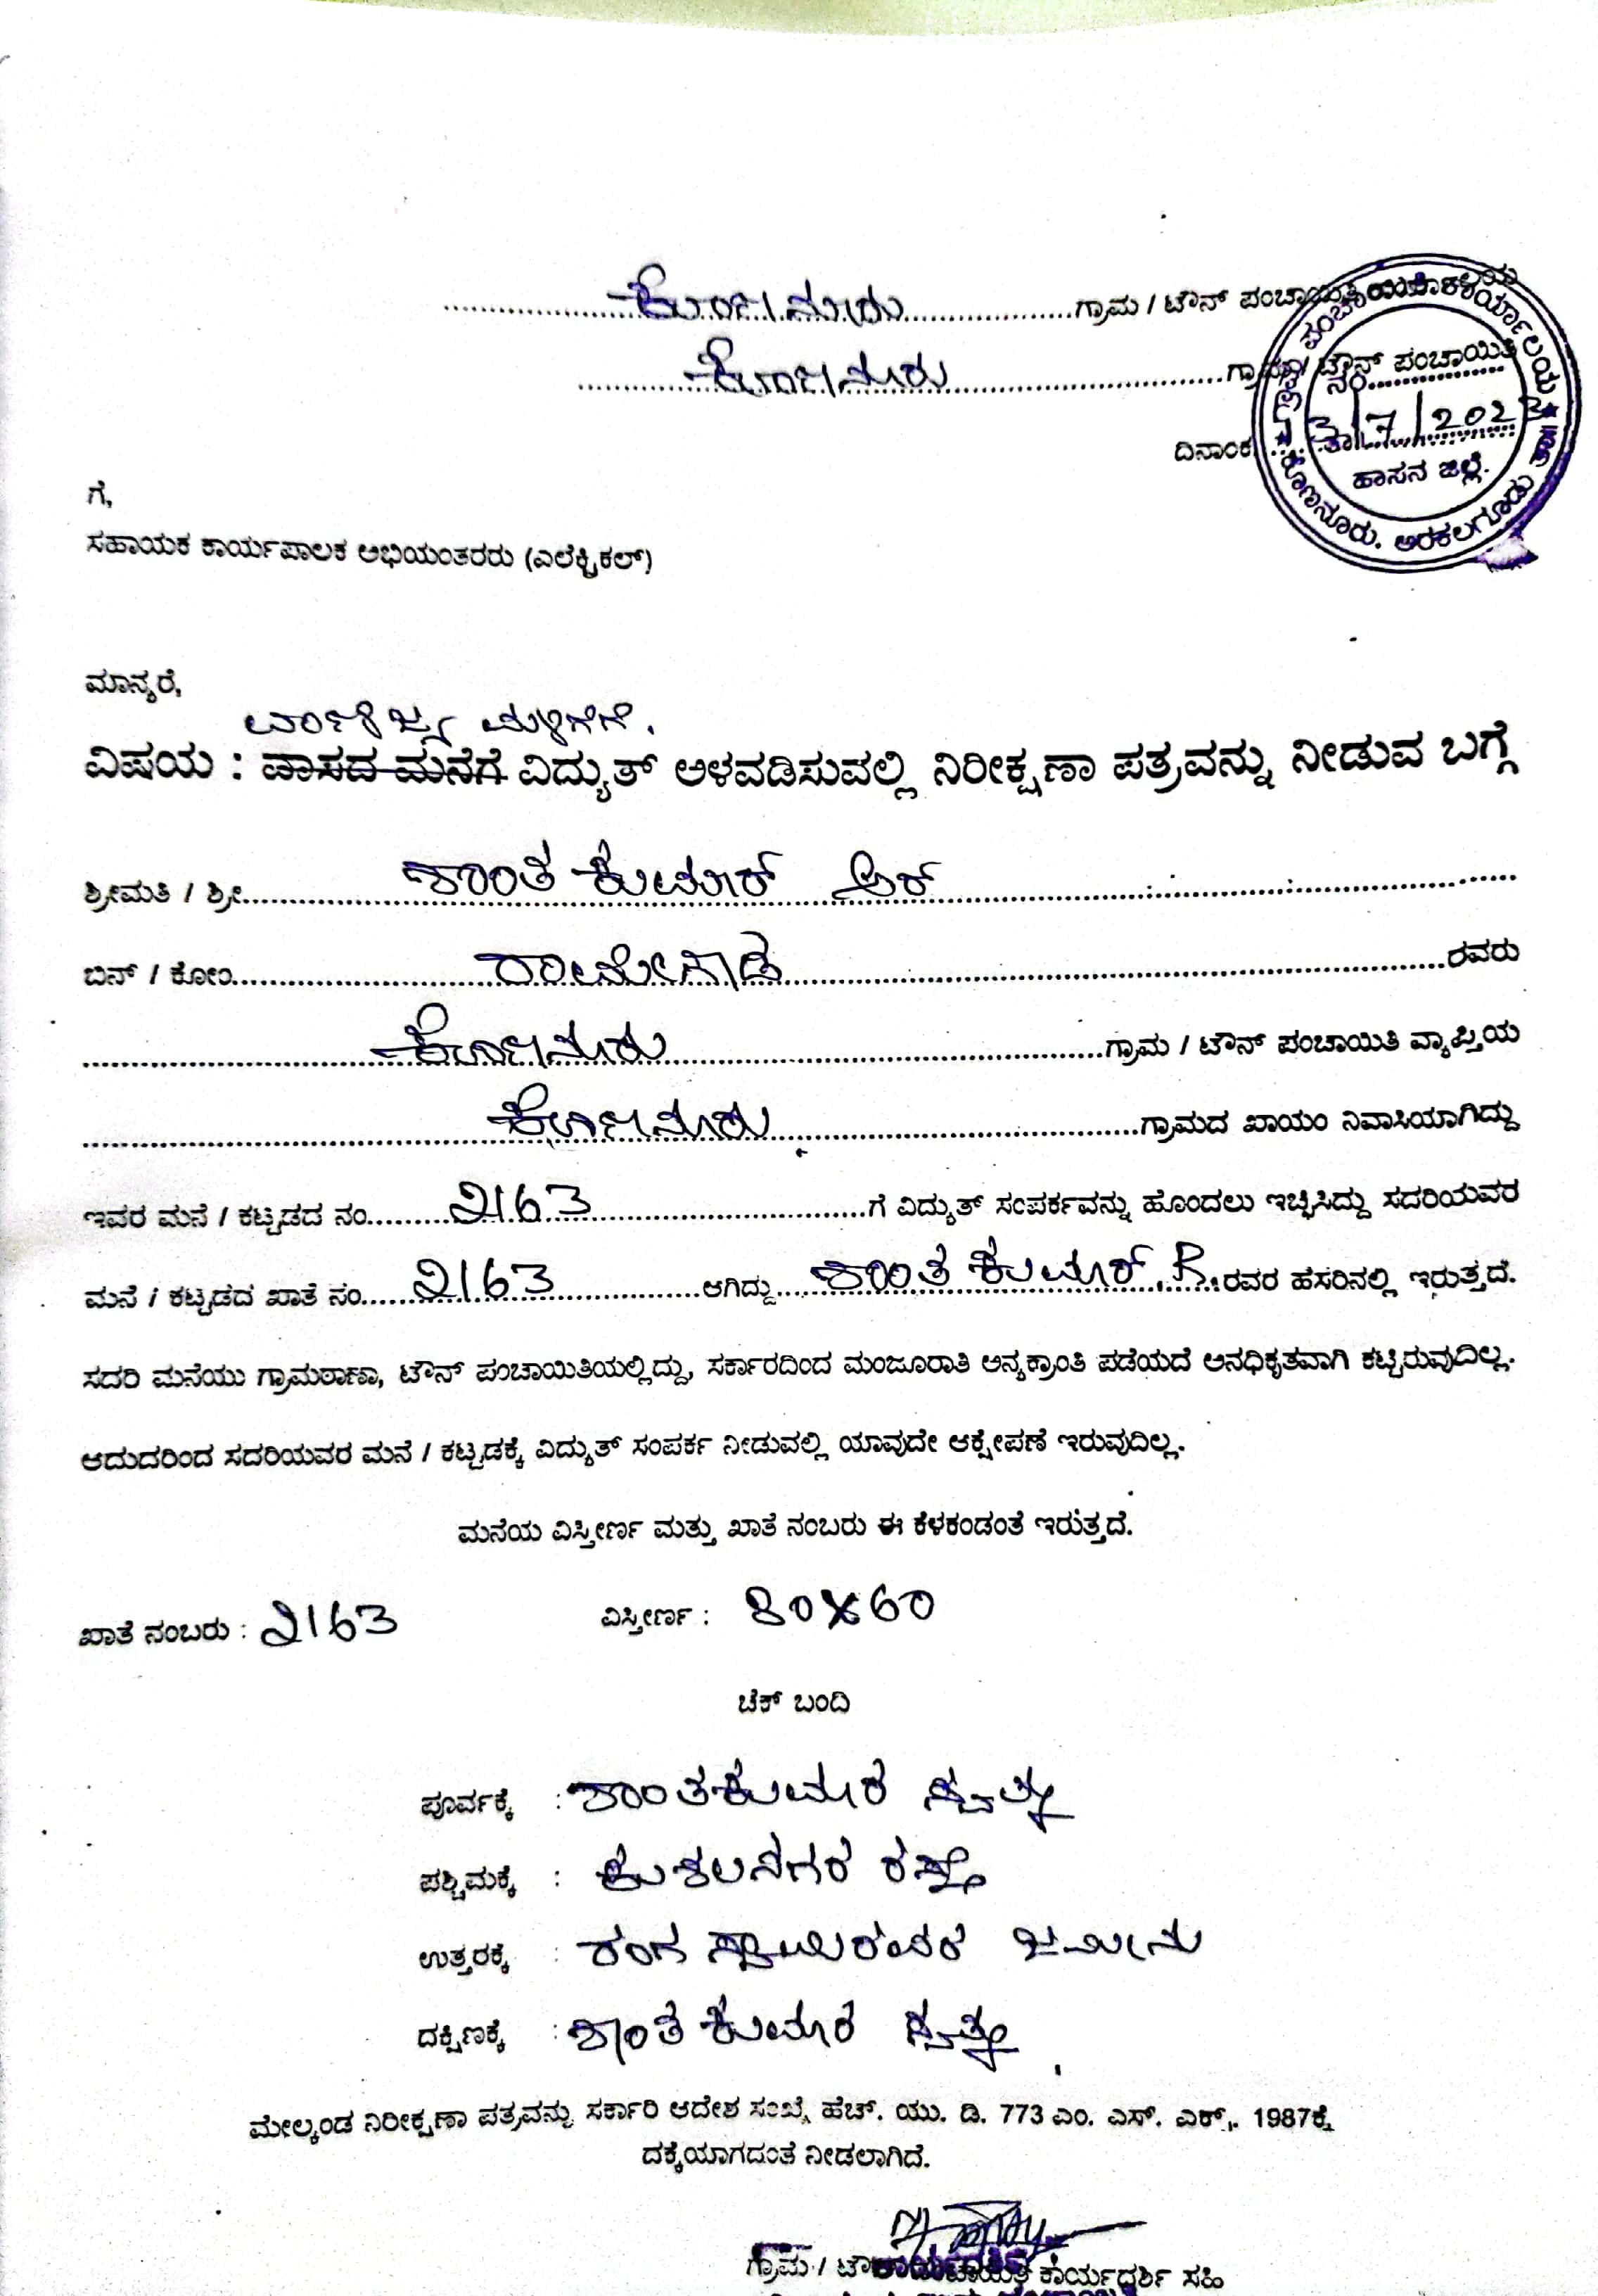 ಕೊಣನೂರು ಗ್ರಾಮ / ಟೌನ್ ಪಂಚಾಯಿತಿ ಕಾರ್ಯಾಲಯ
ಕೊಣನೂರು ಗ್ರಾಮ / ಟೌನ್ ಪಂಚಾಯಿತಿ
ನಂ
ದಿನಾಂಕ 13/7/2023
ತಾ
ಹಾಸನ ಜಿಲ್ಲೆ.
ಪಂಚಾಯಿತಿ ಕಾರ್ಯಾಲಯ ★ ಕೊಣನೂರು. ಅರಕಲಗೂಡು ★
ಗೆ,
ಸಹಾಯಕ ಕಾರ್ಯಪಾಲಕ ಅಭಿಯಂತರರು (ಎಲೆಕ್ಟ್ರಿಕಲ್)
ಮಾನ್ಯರೆ,
ವಾಣಿಜ್ಯ ಮಳಿಗೆಗೆ.
ವಿಷಯ : ವಾಸದ ಮನೆಗೆ ವಿದ್ಯುತ್ ಅಳವಡಿಸುವಲ್ಲಿ ನಿರೀಕ್ಷಣಾ ಪತ್ರವನ್ನು ನೀಡುವ ಬಗ್ಗೆ
ಶ್ರೀಮತಿ / ಶ್ರೀ ಶಾಂತ ಕುಮಾರ್ ಆರ್
ಬಿನ್ / ಕೋಂ ರಾಮೇಗೌಡ ರವರು
ಕೊಣನೂರು ಗ್ರಾಮ / ಟೌನ್ ಪಂಚಾಯಿತಿ ವ್ಯಾಪ್ತಿಯ
ಕೊಣನೂರು ಗ್ರಾಮದ ಖಾಯಂ ನಿವಾಸಿಯಾಗಿದ್ದು
ಇವರ ಮನೆ / ಕಟ್ಟಡದ ನಂ. 2163 ಗೆ ವಿದ್ಯುತ್ ಸಂಪರ್ಕವನ್ನು ಹೊಂದಲು ಇಚ್ಛಿಸಿದ್ದು ಸದರಿಯವರ
ಮನೆ / ಕಟ್ಟಡದ ಖಾತೆ ನಂ. 2163 ಆಗಿದ್ದು ಶಾಂತ ಕುಮಾರ್. R. ರವರ ಹೆಸರಿನಲ್ಲಿ ಇರುತ್ತದೆ.
ಸದರಿ ಮನೆಯು ಗ್ರಾಮಠಾಣಾ, ಟೌನ್ ಪಂಚಾಯಿತಿಯಲ್ಲಿದ್ದು, ಸರ್ಕಾರದಿಂದ ಮಂಜೂರಾತಿ ಅನ್ಯಕ್ರಾಂತಿ ಪಡೆಯದೆ ಅನಧಿಕೃತವಾಗಿ ಕಟ್ಟಿರುವುದಿಲ್ಲ.
ಆದುದರಿಂದ ಸದರಿಯವರ ಮನೆ / ಕಟ್ಟಡಕ್ಕೆ ವಿದ್ಯುತ್ ಸಂಪರ್ಕ ನೀಡುವಲ್ಲಿ ಯಾವುದೇ ಆಕ್ಷೇಪಣೆ ಇರುವುದಿಲ್ಲ.
ಮನೆಯ ವಿಸ್ತೀರ್ಣ ಮತ್ತು ಖಾತೆ ನಂಬರು ಈ ಕೆಳಕಂಡಂತೆ ಇರುತ್ತದೆ.
ಖಾತೆ ನಂಬರು : 2163 ವಿಸ್ತೀರ್ಣ : 80X60
ಚೆಕ್ ಬಂದಿ
ಪೂರ್ವಕ್ಕೆ : ಶಾಂತಕುಮಾರ ಸ್ವತ್ತು
ಪಶ್ಚಿಮಕ್ಕೆ : ಕುಶಲನಗರ ರಸ್ತೆ
ಉತ್ತರಕ್ಕೆ : ರಂಗ ಸ್ವಾಮಿರವರ ಜಮೀನು
ದಕ್ಷಿಣಕ್ಕೆ : ಶಾಂತ ಕುಮಾರ ಸ್ವತ್ತು
ಮೇಲ್ಕಂಡ ನಿರೀಕ್ಷಣಾ ಪತ್ರವನ್ನು ಸರ್ಕಾರಿ ಆದೇಶ ಸಂಖ್ಯೆ ಹೆಚ್. ಯು. ಡಿ. 773 ಎಂ. ಎಸ್. ಎಕ್ಸ್. 1987ಕ್ಕೆ
ದಕ್ಕೆಯಾಗದಂತೆ ನೀಡಲಾಗಿದೆ.
ಗ್ರಾಮ / ಟೌನ್ ಪಂಚಾಯಿತಿ ಕಾರ್ಯದರ್ಶಿ ಸಹಿ